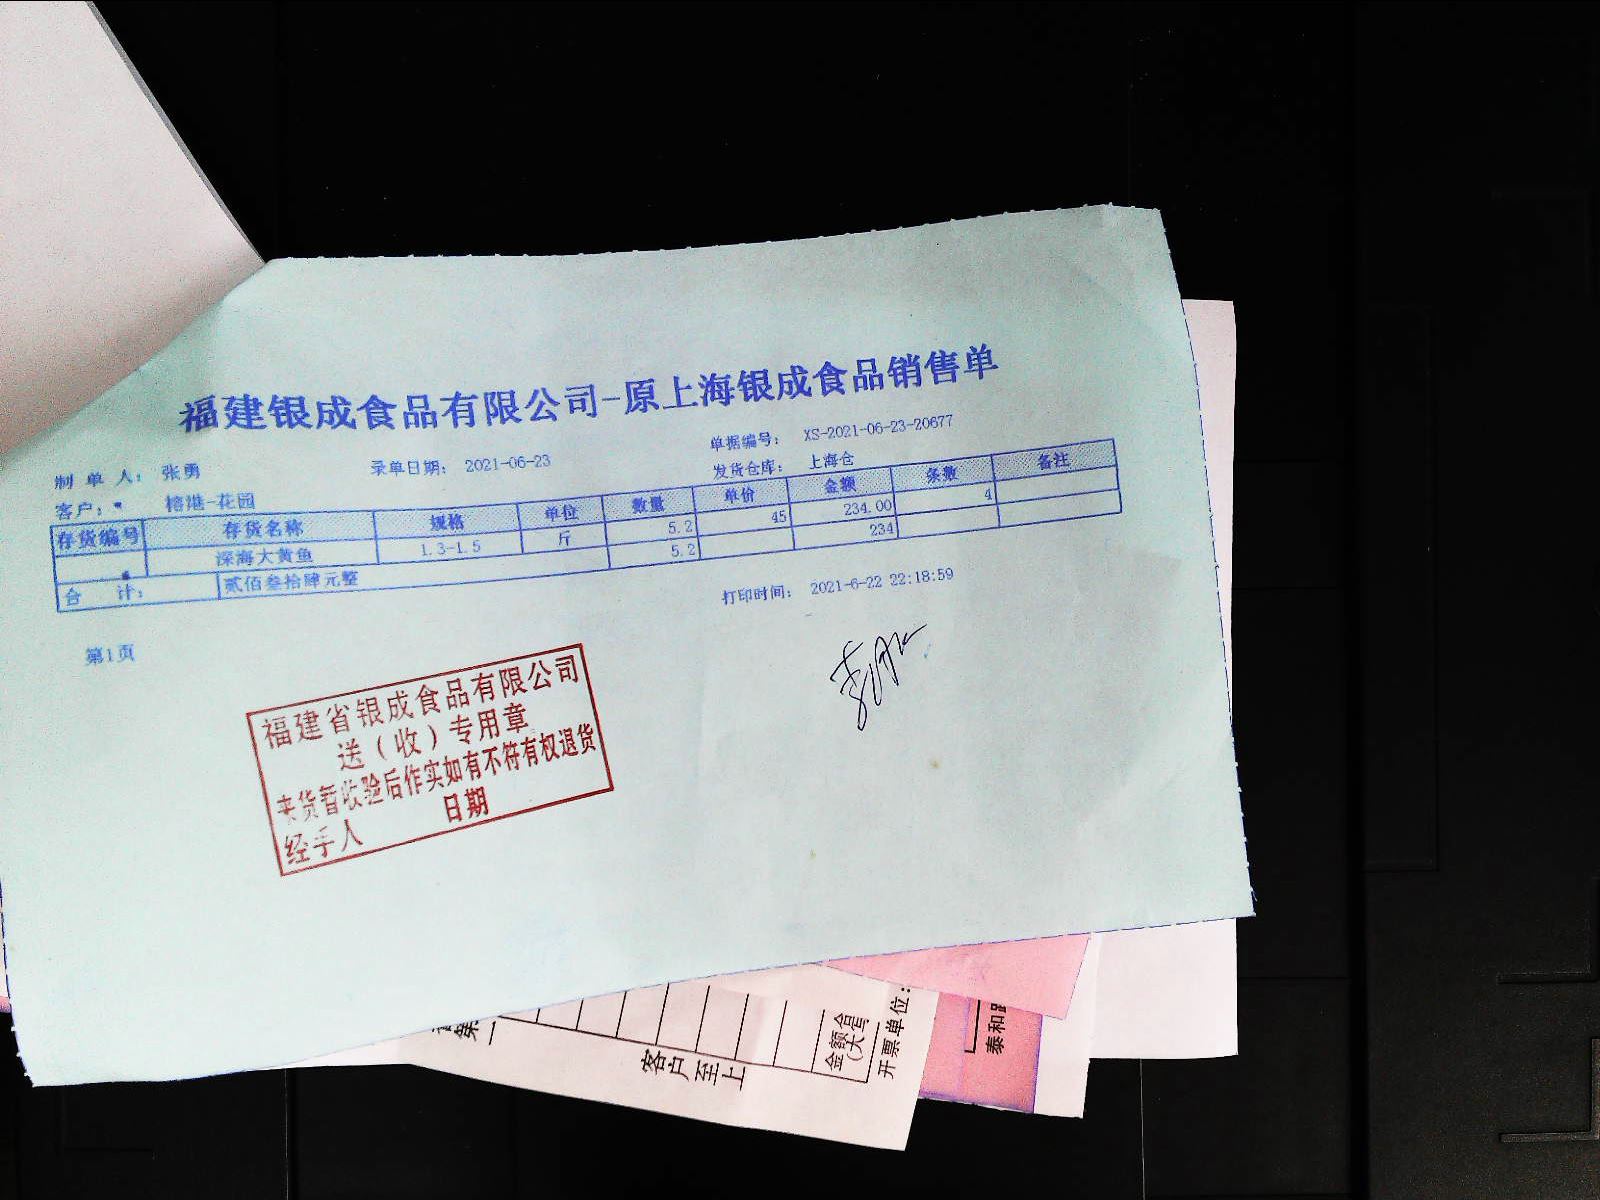 福建银成食品有限公司-原上海银成食品销售单
单据编号： XS-2021-06-23-20677
制 单 人： 张勇 录单日期： 2021-06-23 发货仓库： 上海仓
客户： 榕港-花园
存货编号 存货名称 规格 单位 数量 单价 金额 条数 备注
深海大黄鱼 1.3-1.5 斤 5.2 45 234.00 4
合 计： 贰佰叁拾肆元整 5.2 234
打印时间： 2021-6-22 22:18:59
第1页
福建省银成食品有限公司
送（收）专用章
来货暂收验后作实如有不符有权退货
经手人 日期
客户至上
金额合
(大写
开票单位：
泰和路